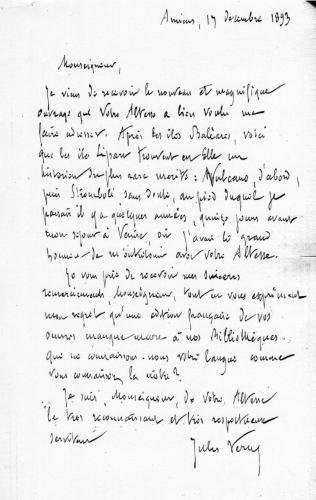 Amiens, 17 décembre 1893
Monseigneur,
Je viens de recevoir le nouveau et magnifique
ouvrage que Votre Altesse a bien voulu me
faire adresser. Après les îles Baléares, voici
que les îles Lipari trouvent en Elle un
historien du plus rare mérite : Vulcano, d'abord,
puis Stromboli sans doute, au pied duquel je
passais il y a quelques années, quinze jours avant
mon séjour à Venise, où j'avais le grand
honneur de m'entretenir avec votre Altesse.
Je vous prie de recevoir mes sincères
remerciements, Monseigneur, tout en vous exprimant
mon regret qu'une édition française de vos
œuvres manque encore à nos Bibliothèques.
Que ne connaissons-nous votre langue comme
vous connaissez la nôtre ?
Je suis, Monseigneur, de Votre Altesse
le très reconnaissant et très respectueux
serviteur
Jules Verne